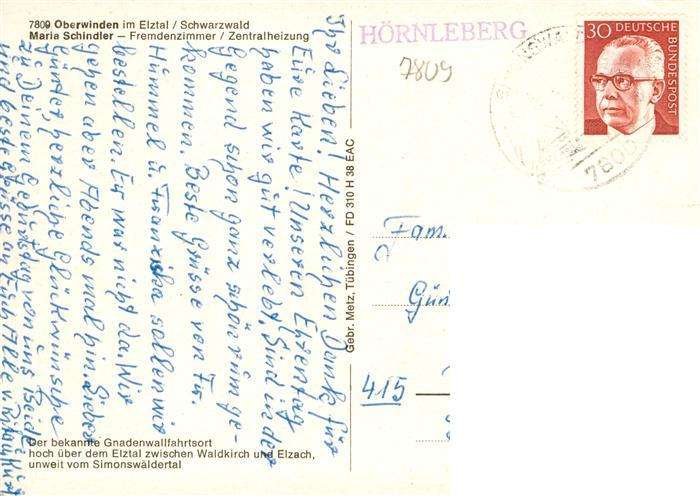 7809 Oberwinden im Elztal / Schwarzwald
Maria Schindler – Fremdenzimmer / Zentralheizung
HÖRNLEBERG
7809
30 DEUTSCHE BUNDESPOST
7809
Ihr Lieben! Herzlichen Dank für
Eure Karte! Unseren Ehrentag
haben wir gut verlebt. Sind in der
Gegend schon ganz schön rum ge-
kommen. Beste Grüsse von Fr.
Hümmel u. Franziska sollen wir
bestellen. Er war nicht da. Wir
gehen aber Abends mal hin. Lieber
Günter, herzliche Glückwünsche
zu Deinem Geburtstag von uns Beide
und beste Grüsse an Euch Alle v.
Gebr. Metz, Tübingen / FD 310 H 38 EAC
Fam.
Gün
415
Der bekannte Gnadenwallfahrtsort
hoch über dem Elztal zwischen Waldkirch und Elzach,
unweit vom Simonswäldertal